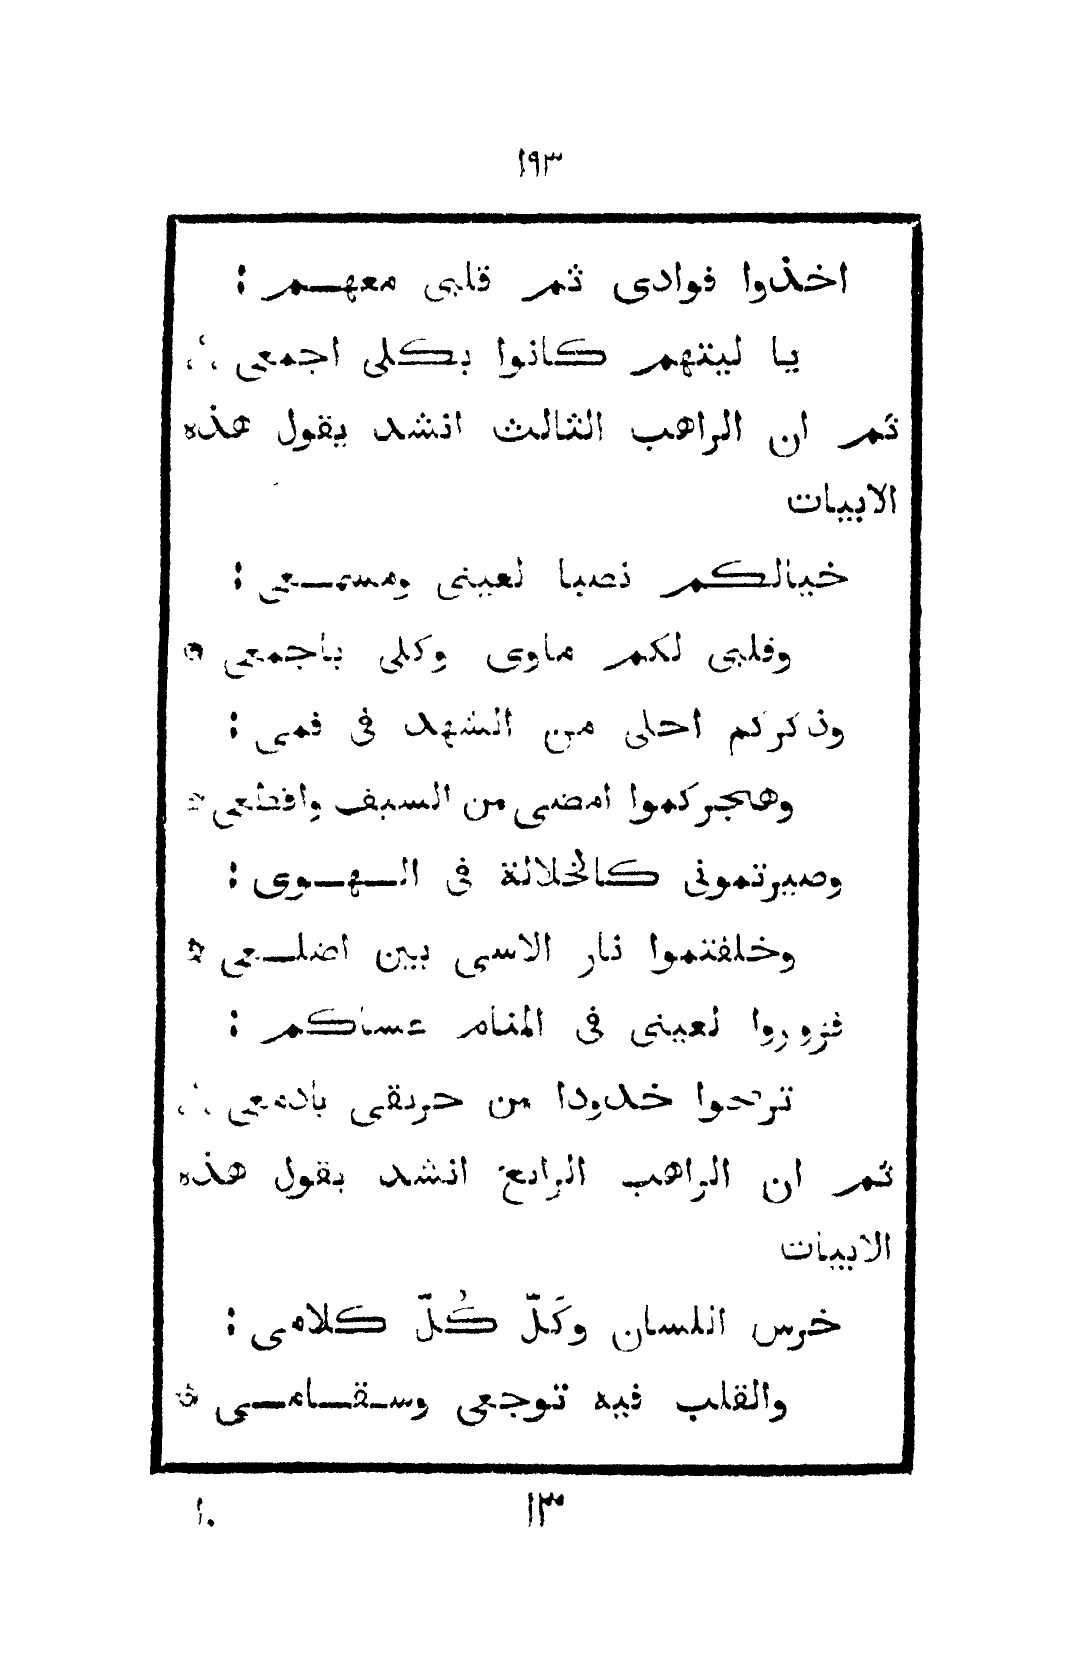 ١٩٣
اخذوا فوادى ثم قلبى معهم :
يا ليتهم كانوا بكلى اجمعى ∴
ثم ان الراهب الثالث انشد يقول هذه
الابيات
خيالكم نصبا لعينى ومسمعى :
وقلبى لكم ماوى وكلى باجمعى *
وذكركم احلى من الشهد فى فمى :
وهجركموا امضى من السيف واقطعى *
وصيرتمونى كالخلالة فى الهوى :
وخلفتموا نار الاسى بين اضلعى *
فزوروا لعينى فى المنام عساكم :
ترحوا خدودا من حريقى بادمعى ∴
ثم ان الراهب الرابع انشد يقول هذه
الابيات
خرس اللسان وكَلّ كُلّ كلامى :
والقلب فيه توجعى وسقامى *
١٣
١٠